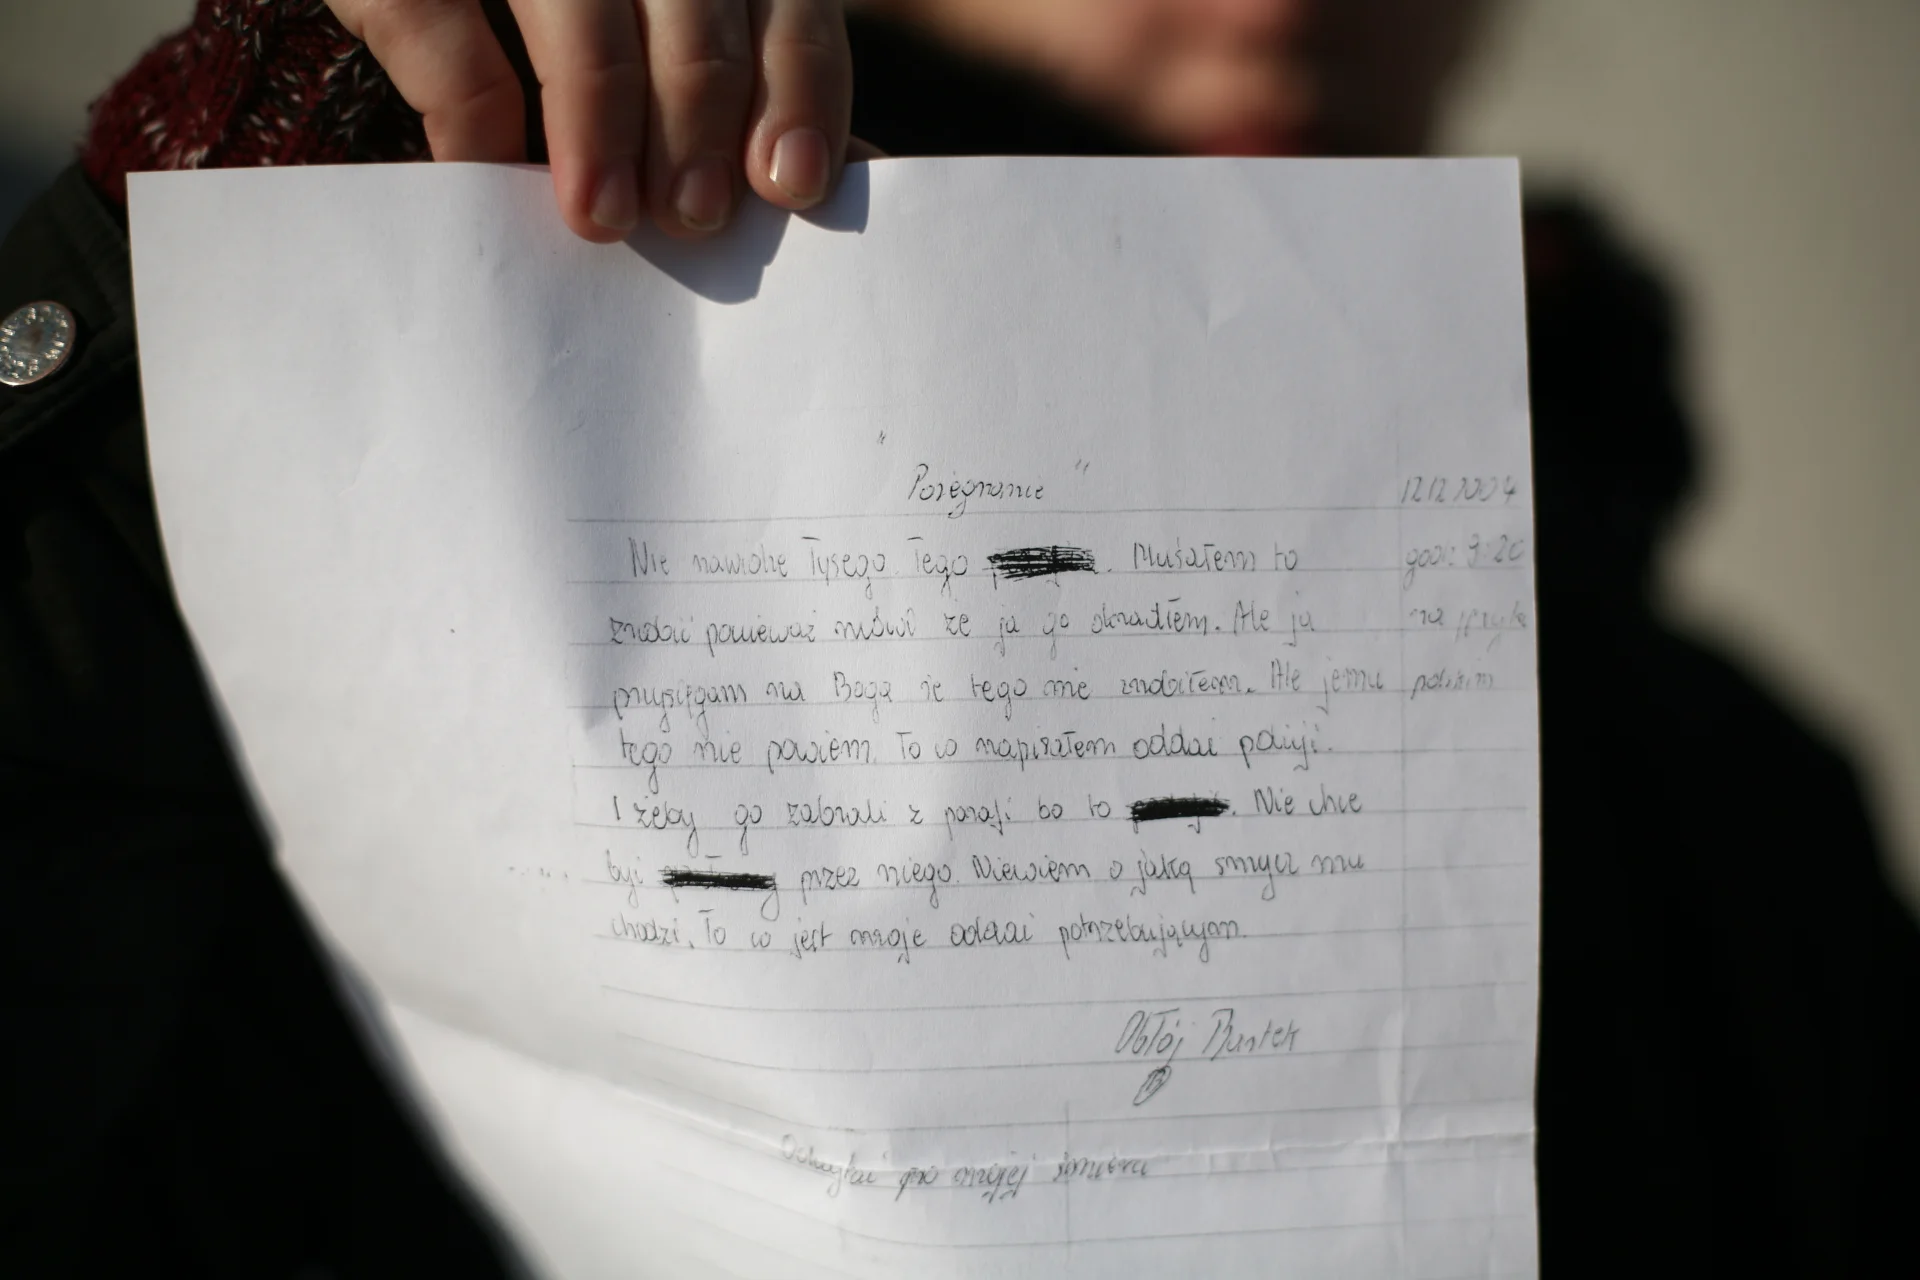 " Porzegnanie "
12.12.2004
Nie nawidzę Łysego. Tego . Musiałem to
godz: 9:20
zrobić ponieważ mówił że ja go okradłem. Ale ja
na
przysięgam na Boga że tego nie zrobiłem. Ale jemu
polskim
tego nie powiem. To co napisałem oddać policji.
I żeby go zabrali z parafi bo to . Nie chce
być przez niego. Niewiem o jaką smycz mu
chodzi. To co jest moje oddać potrzebującym.
Obłój Bartek
po mojej śmierci